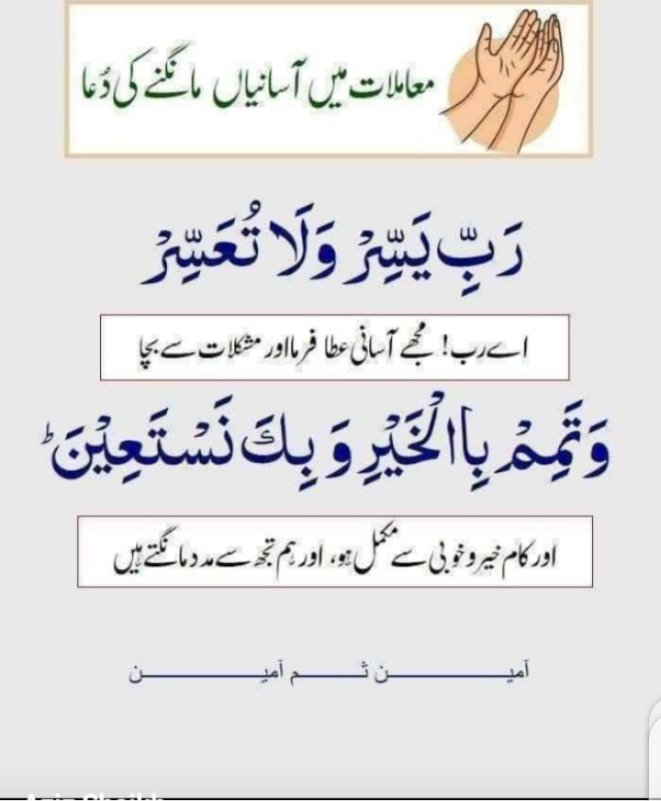 معاملات میں آسانیاں مانگنے کی دُعا
رَبِّ يَسِّرْ وَلَا تُعَسِّرْ
اے رب! مجھے آسانی عطا فرما اور مشکلات سے بچا
وَتَمِمْ بِاالْخَيْرِ وَ بِكَ نَسْتَعِيْنَ ؕ
اور کام خیر و خوبی سے مکمل ہو، اور ہم تجھ سے مدد مانگتے ہیں
آمیـــــــن ثـــــــم آمیـــــــن